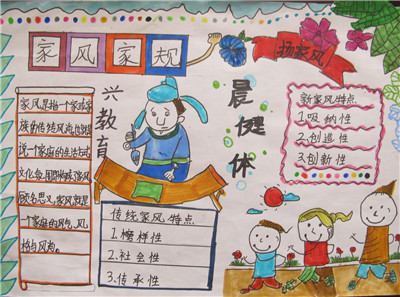 家风家规
扬家风
兴教育
晨健体
家风是指一个家或家
族的传统风尚也就是
说一个家庭的生活方式
文化氛围构成家风
顾名思义,家风就是
一个家庭的风气、风
格与风尚。
传统家风特点
1.榜样性
2.社会性
3.传承性
新家风特点
1.吸纳性
2.创造性
3.创新性